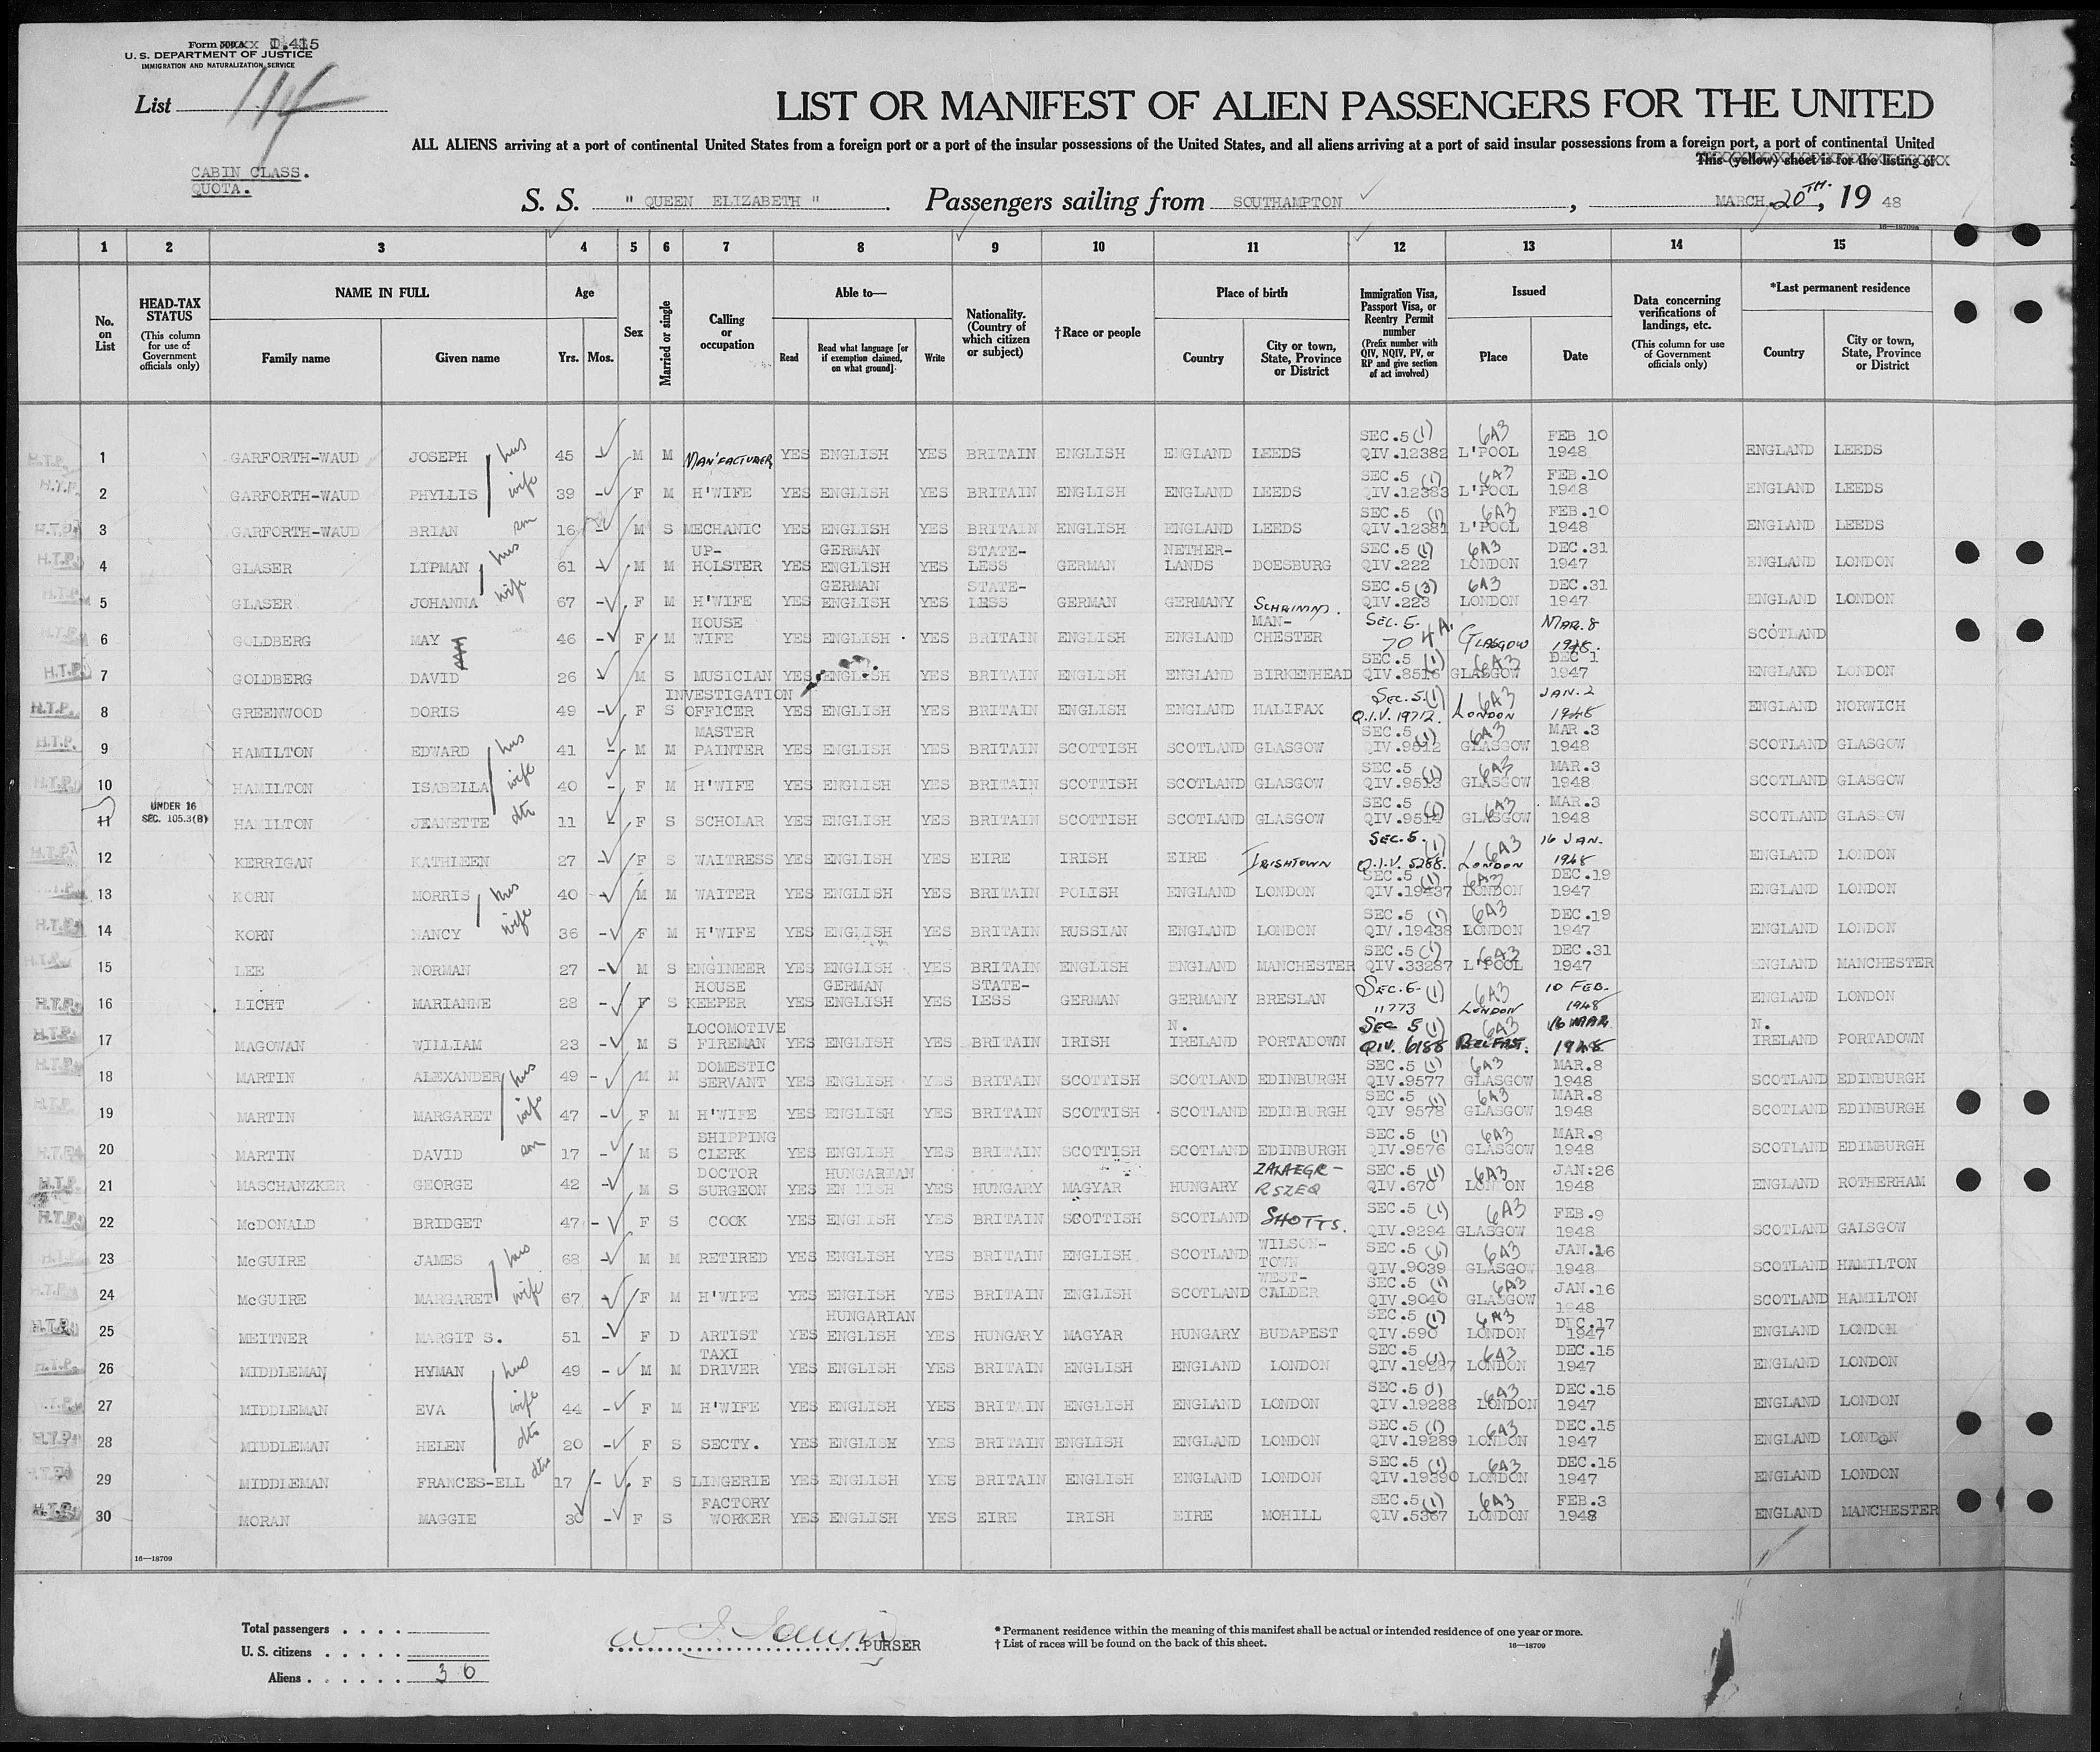 Form 500A XXX I.415
U. S. DEPARTMENT OF JUSTICE
IMMIGRATION AND NATURALIZATION SERVICE
List 114
LIST OR MANIFEST OF ALIEN PASSENGERS FOR THE UNITED
ALL ALIENS arriving at a port of continental United States from a foreign port or a port of the insular possessions of the United States, and all aliens arriving at a port of said insular possessions from a foreign port, a port of continental United
This (yellow) sheet is for the listing of
CABIN CLASS.
QUOTA.
S. S. " QUEEN ELIZABETH " Passengers sailing from SOUTHAMPTON , MARCH 20TH, 19 48
16—18709a
1 2 3 4 5 6 7 8 9 10 11 12 13 14 15
No. on List
HEAD-TAX STATUS (This column for use of Government officials only)
NAME IN FULL Family name Given name
Age Yrs. Mos.
Sex
Married or single
Calling or occupation
Able to— Read Read what language [or if exemption claimed, on what ground] Write
Nationality. (Country of which citizen or subject)
†Race or people
Place of birth Country City or town, State, Province or District
Immigration Visa, Passport Visa, or Reentry Permit number (Prefix number with QIV, NQIV, PV, or RP and give section of act involved)
Issued Place Date
Data concerning verifications of landings, etc. (This column for use of Government officials only)
*Last permanent residence Country City or town, State, Province or District
H.T.P. 1 GARFORTH-WAUD JOSEPH hus 45 - M M MAN'FACTURER YES ENGLISH YES BRITAIN ENGLISH ENGLAND LEEDS SEC.5 (1) QIV.12382 6A3 L'POOL FEB 10 1948 ENGLAND LEEDS
H.T.P. 2 GARFORTH-WAUD PHYLLIS wife 39 - F M H'WIFE YES ENGLISH YES BRITAIN ENGLISH ENGLAND LEEDS SEC.5 (1) QIV.12383 6A3 L'POOL FEB.10 1948 ENGLAND LEEDS
H.T.P. 3 GARFORTH-WAUD BRIAN son 16 - M S MECHANIC YES ENGLISH YES BRITAIN ENGLISH ENGLAND LEEDS SEC.5 (1) QIV.12381 6A3 L'POOL FEB.10 1948 ENGLAND LEEDS
H.T.P. 4 GLASER LIPMAN hus 61 - M M UP-HOLSTER YES GERMAN ENGLISH YES STATE-LESS GERMAN NETHER-LANDS DOESBURG SEC.5 (1) QIV.222 6A3 LONDON DEC.31 1947 ENGLAND LONDON
H.T.P. 5 GLASER JOHANNA wife 67 - F M H'WIFE YES GERMAN ENGLISH YES STATE-LESS GERMAN GERMANY SCHRIMM. SEC.5 (3) QIV.223 6A3 LONDON DEC.31 1947 ENGLAND LONDON
H.T.P. 6 GOLDBERG MAY 46 - F M HOUSE WIFE YES ENGLISH YES BRITAIN ENGLISH ENGLAND MAN-CHESTER SEC. 5. 704A. GLASGOW MAR. 8 1948. SCOTLAND
H.T.P. 7 GOLDBERG DAVID 26 M S MUSICIAN YES ENGLISH YES BRITAIN ENGLISH ENGLAND BIRKENHEAD SEC.5 (1) QIV.8516 6A3 GLASGOW DEC 1 1947 ENGLAND LONDON
H.T.P. 8 GREENWOOD DORIS 49 - F S INVESTIGATION OFFICER YES ENGLISH YES BRITAIN ENGLISH ENGLAND HALIFAX SEC. 5. (1) Q.I.V. 19712. 6A3 LONDON JAN. 2 1948 ENGLAND NORWICH
H.T.P. 9 HAMILTON EDWARD hus 41 - M M MASTER PAINTER YES ENGLISH YES BRITAIN SCOTTISH SCOTLAND GLASGOW SEC.5 (1) QIV.9512 6A3 GLASGOW MAR.3 1948 SCOTLAND GLASGOW
H.T.P. 10 HAMILTON ISABELLA wife 40 - F M H'WIFE YES ENGLISH YES BRITAIN SCOTTISH SCOTLAND GLASGOW SEC.5 (1) QIV.9513 6A3 GLASGOW MAR.3 1948 SCOTLAND GLASGOW
11 UNDER 16 SEC. 105.3(B) HAMILTON JEANETTE dtr 11 - F S SCHOLAR YES ENGLISH YES BRITAIN SCOTTISH SCOTLAND GLASGOW SEC.5 (1) 6A3 GLASGOW MAR.3 1948 SCOTLAND GLASGOW
H.T.P. 12 KERRIGAN KATHLEEN 27 - F S WAITRESS YES ENGLISH YES EIRE IRISH EIRE IRISHTOWN SEC. 5. (1) Q.I.V. 5288. 6A3 LONDON 16 JAN. 1948 ENGLAND LONDON
H.T.P. 13 KORN MORRIS hus 40 - M M WAITER YES ENGLISH YES BRITAIN POLISH ENGLAND LONDON SEC.5 (1) QIV.19437 6A3 LONDON DEC.19 1947 ENGLAND LONDON
H.T.P. 14 KORN NANCY wife 36 - F M H'WIFE YES ENGLISH YES BRITAIN RUSSIAN ENGLAND LONDON SEC.5 (1) QIV.19438 6A3 LONDON DEC.19 1947 ENGLAND LONDON
H.T.P. 15 LEE NORMAN 27 - M S ENGINEER YES ENGLISH YES BRITAIN ENGLISH ENGLAND MANCHESTER SEC.5 (1) QIV.33287 6A3 L'POOL DEC.31 1947 ENGLAND MANCHESTER
H.T.P. 16 LICHT MARIANNE 28 - F S HOUSE KEEPER YES GERMAN ENGLISH YES STATE-LESS GERMAN GERMANY BRESLAN SEC. 6. (1) 11773 6A3 LONDON 10 FEB. 1948 ENGLAND LONDON
H.T.P. 17 MAGOWAN WILLIAM 23 - M S LOCOMOTIVE FIREMAN YES ENGLISH YES BRITAIN IRISH N. IRELAND PORTADOWN SEC 5 (1) QIV. 6188 6A3 BELFAST. 16 MAR. 1948 N. IRELAND PORTADOWN
H.T.P. 18 MARTIN ALEXANDER hus 49 - M M DOMESTIC SERVANT YES ENGLISH YES BRITAIN SCOTTISH SCOTLAND EDINBURGH SEC.5 (1) QIV.9577 6A3 GLASGOW MAR.8 1948 SCOTLAND EDINBURGH
H.T.P. 19 MARTIN MARGARET wife 47 - F M H'WIFE YES ENGLISH YES BRITAIN SCOTTISH SCOTLAND EDINBURGH SEC.5 (1) QIV 9578 6A3 GLASGOW MAR.8 1948 SCOTLAND EDINBURGH
H.T.P. 20 MARTIN DAVID son 17 - M S SHIPPING CLERK YES ENGLISH YES BRITAIN SCOTTISH SCOTLAND EDINBURGH SEC.5 (1) QIV.9576 6A3 GLASGOW MAR.8 1948 SCOTLAND EDIMBURGH
H.T.P. 21 MASCHANZKER GEORGE 42 - M S DOCTOR SURGEON YES HUNGARIAN ENGLISH YES HUNGARY MAGYAR HUNGARY ZALAEGR-RSZEQ SEC.5 (1) QIV.670 6A3 LONDON JAN:26 1948 ENGLAND ROTHERHAM
H.T.P. 22 McDONALD BRIDGET 47 - F S COOK YES ENGLISH YES BRITAIN SCOTTISH SCOTLAND SHOTTS. SEC.5 (1) QIV.9294 6A3 GLASGOW FEB.9 1948 SCOTLAND GALSGOW
H.T.P. 23 McGUIRE JAMES hus 68 - M M RETIRED YES ENGLISH YES BRITAIN ENGLISH SCOTLAND WILSON-TOWN SEC.5 (1) QIV.9039 6A3 GLASGOW JAN.16 1948 SCOTLAND HAMILTON
H.T.P. 24 McGUIRE MARGARET wife 67 - F M H'WIFE YES ENGLISH YES BRITAIN ENGLISH SCOTLAND WEST-CALDER SEC.5 (1) QIV.9040 6A3 GLASGOW JAN.16 1948 SCOTLAND HAMILTON
H.T.P. 25 MEITNER MARGIT S. 51 - F D ARTIST YES HUNGARIAN ENGLISH YES HUNGARY MAGYAR HUNGARY BUDAPEST SEC.5 (1) QIV.590 6A3 LONDON DEC.17 1947 ENGLAND LONDON
H.T.P. 26 MIDDLEMAN HYMAN hus 49 - M M TAXI DRIVER YES ENGLISH YES BRITAIN ENGLISH ENGLAND LONDON SEC.5 (1) QIV.19287 6A3 LONDON DEC.15 1947 ENGLAND LONDON
H.T.P. 27 MIDDLEMAN EVA wife 44 - F M H'WIFE YES ENGLISH YES BRITAIN ENGLISH ENGLAND LONDON SEC.5 (1) QIV.19288 6A3 LONDON DEC.15 1947 ENGLAND LONDON
H.T.P. 28 MIDDLEMAN HELEN dtr 20 - F S SECTY. YES ENGLISH YES BRITAIN ENGLISH ENGLAND LONDON SEC.5 (1) QIV.19289 6A3 LONDON DEC.15 1947 ENGLAND LONDON
H.T.P. 29 MIDDLEMAN FRANCES-ELL dtr 17 - F S LINGERIE YES ENGLISH YES BRITAIN ENGLISH ENGLAND LONDON SEC.5 (1) QIV.19390 6A3 LONDON DEC.15 1947 ENGLAND LONDON
H.T.P. 30 MORAN MAGGIE 30 - F S FACTORY WORKER YES ENGLISH YES EIRE IRISH EIRE MOHILL SEC.5 (1) QIV.5367 6A3 LONDON FEB.3 1948 ENGLAND MANCHESTER
16—18709
Total passengers . . . .
U. S. citizens . . . . .
Aliens . . . . . . 30
PURSER
* Permanent residence within the meaning of this manifest shall be actual or intended residence of one year or more.
† List of races will be found on the back of this sheet. 16—18709